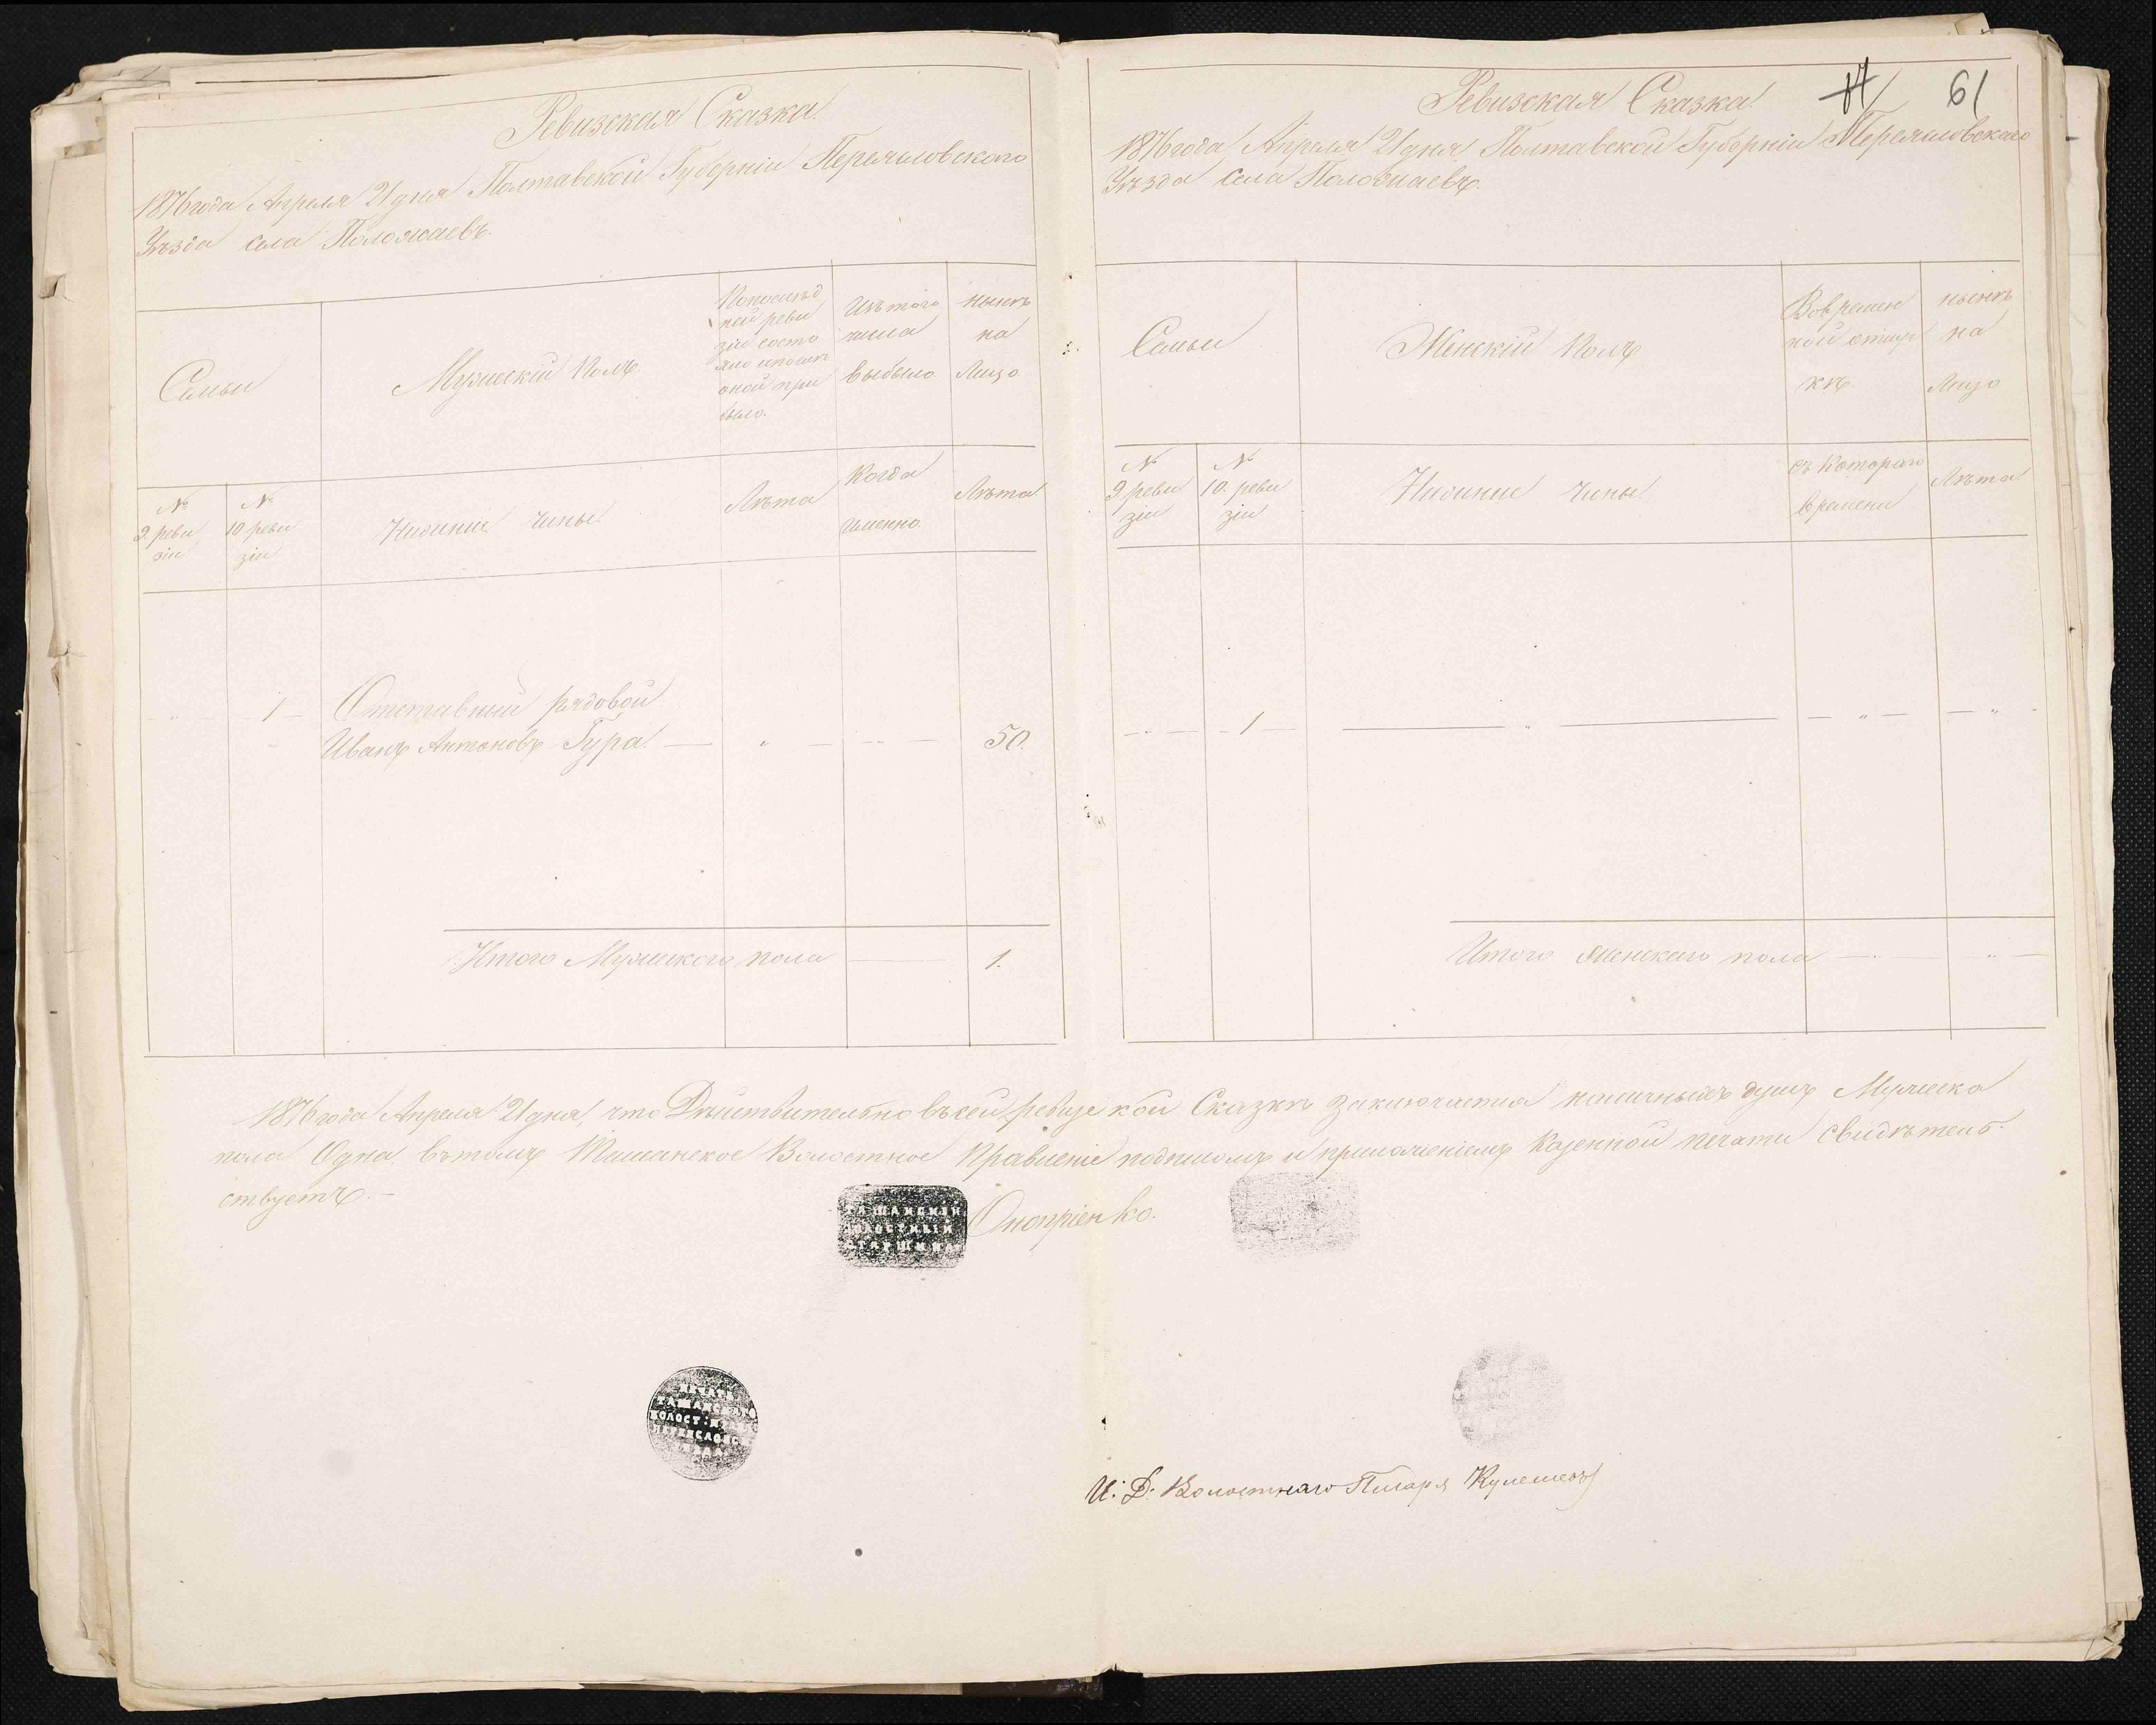 Ревизская Сказка
1876 года Апреля 21 дня Полтавской Губерніи Переяловского
Уѣзда села Положаевъ.
Семьи
Мужеский Полъ
Попослѣд
ней реви
зіи состо
яло ипосли
оной при
было.
Изътого
числа
выбыло
нынѣ
на
Лицо
№
9. реви
зіи
№
10 реви
зіи
Нижніи чины
Лѣта
Когда
именно
Лѣта
1
Отставный рядовой
Иванъ Антоновъ Гура
50.
Итого Мужеского пола
1.
61
Ревизская Сказка
1876 года Апреля 21 дня Полтавской Губерніи Переяловского
Уѣзда села Положаевъ.
Семьи
Женскій Полъ
Вовремен
ной отлуч
кѣ
нынѣ
на
Лицо
№
9 реви
зіи
№
10. реви
зіи
Нижние чины
съ котораго
времени
Лѣта
1
Итого женскаго пола
1876 года Апреля 21 дня, что Дѣйствительно въсей ревизской Сказкѣ заключается наличныхъ душъ Мужеско
пола Одна вътомъ Ташанское Волостное Правленіе подписомъ и приложеніемъ Казенной печати свидѣтель-
ствуетъ.
ТАШАНСКІЙ
ВОЛОСТНЫЙ
СТАРШИНА
Оноприенко.
ПЕЧАТЬ
ТАШАНСКАГО
ВОЛОСТ:
ПЕРЕЯСЛОВСК
И: Д: Волостнаго Писаря Кулешовъ